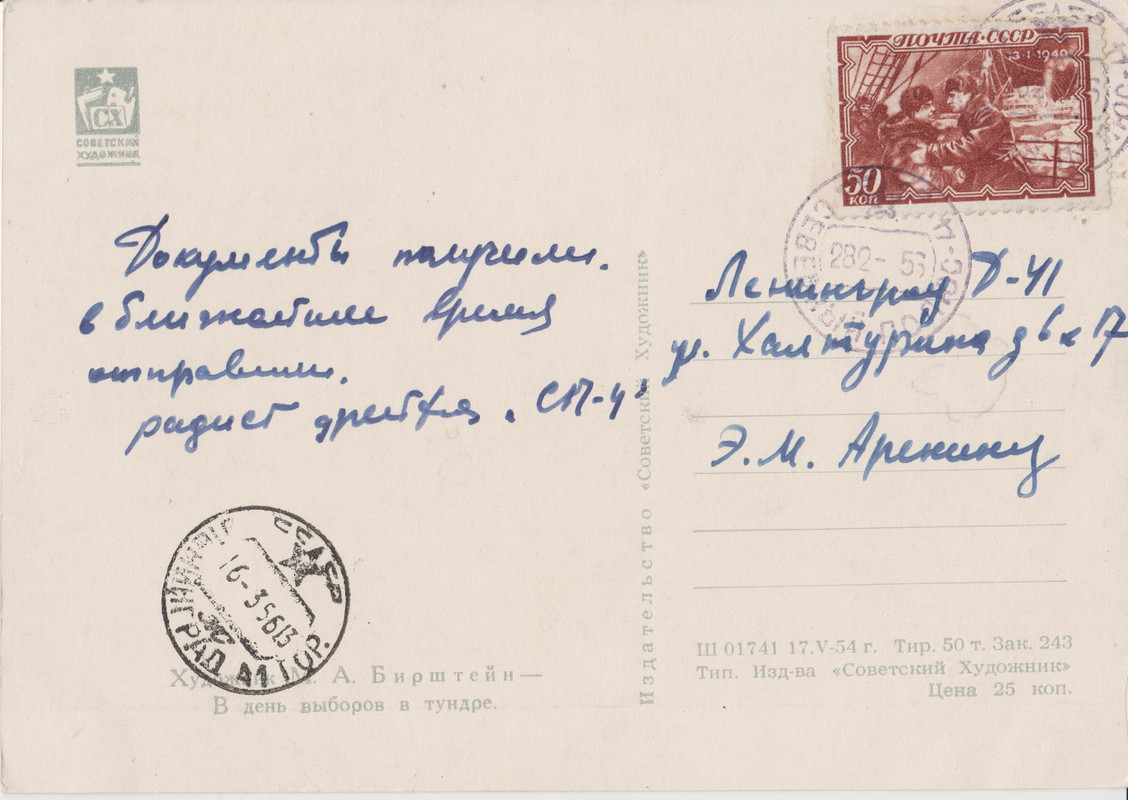 СХ
СОВЕТСКИЙ
ХУДОЖНИК
ПОЧТА·СССР
13·I·1940
50
КОП
Документы получили.
в ближайшие время
отправили.
радист дрейфа „СП-4"
282-56
Ленинград Д-41
ул. Халтурина д 6 к 17
Э. М. Аренину
Издательство «Советский Художник»
СССР
16-35613
ЛЕНИНГРАД 41 ГОР.
Художник М. А. Бирштейн—
В день выборов в тундре.
Ш 01741 17.V-54 г. Тир. 50 т. Зак. 243
Тип. Изд-ва «Советский Художник»
Цена 25 коп.